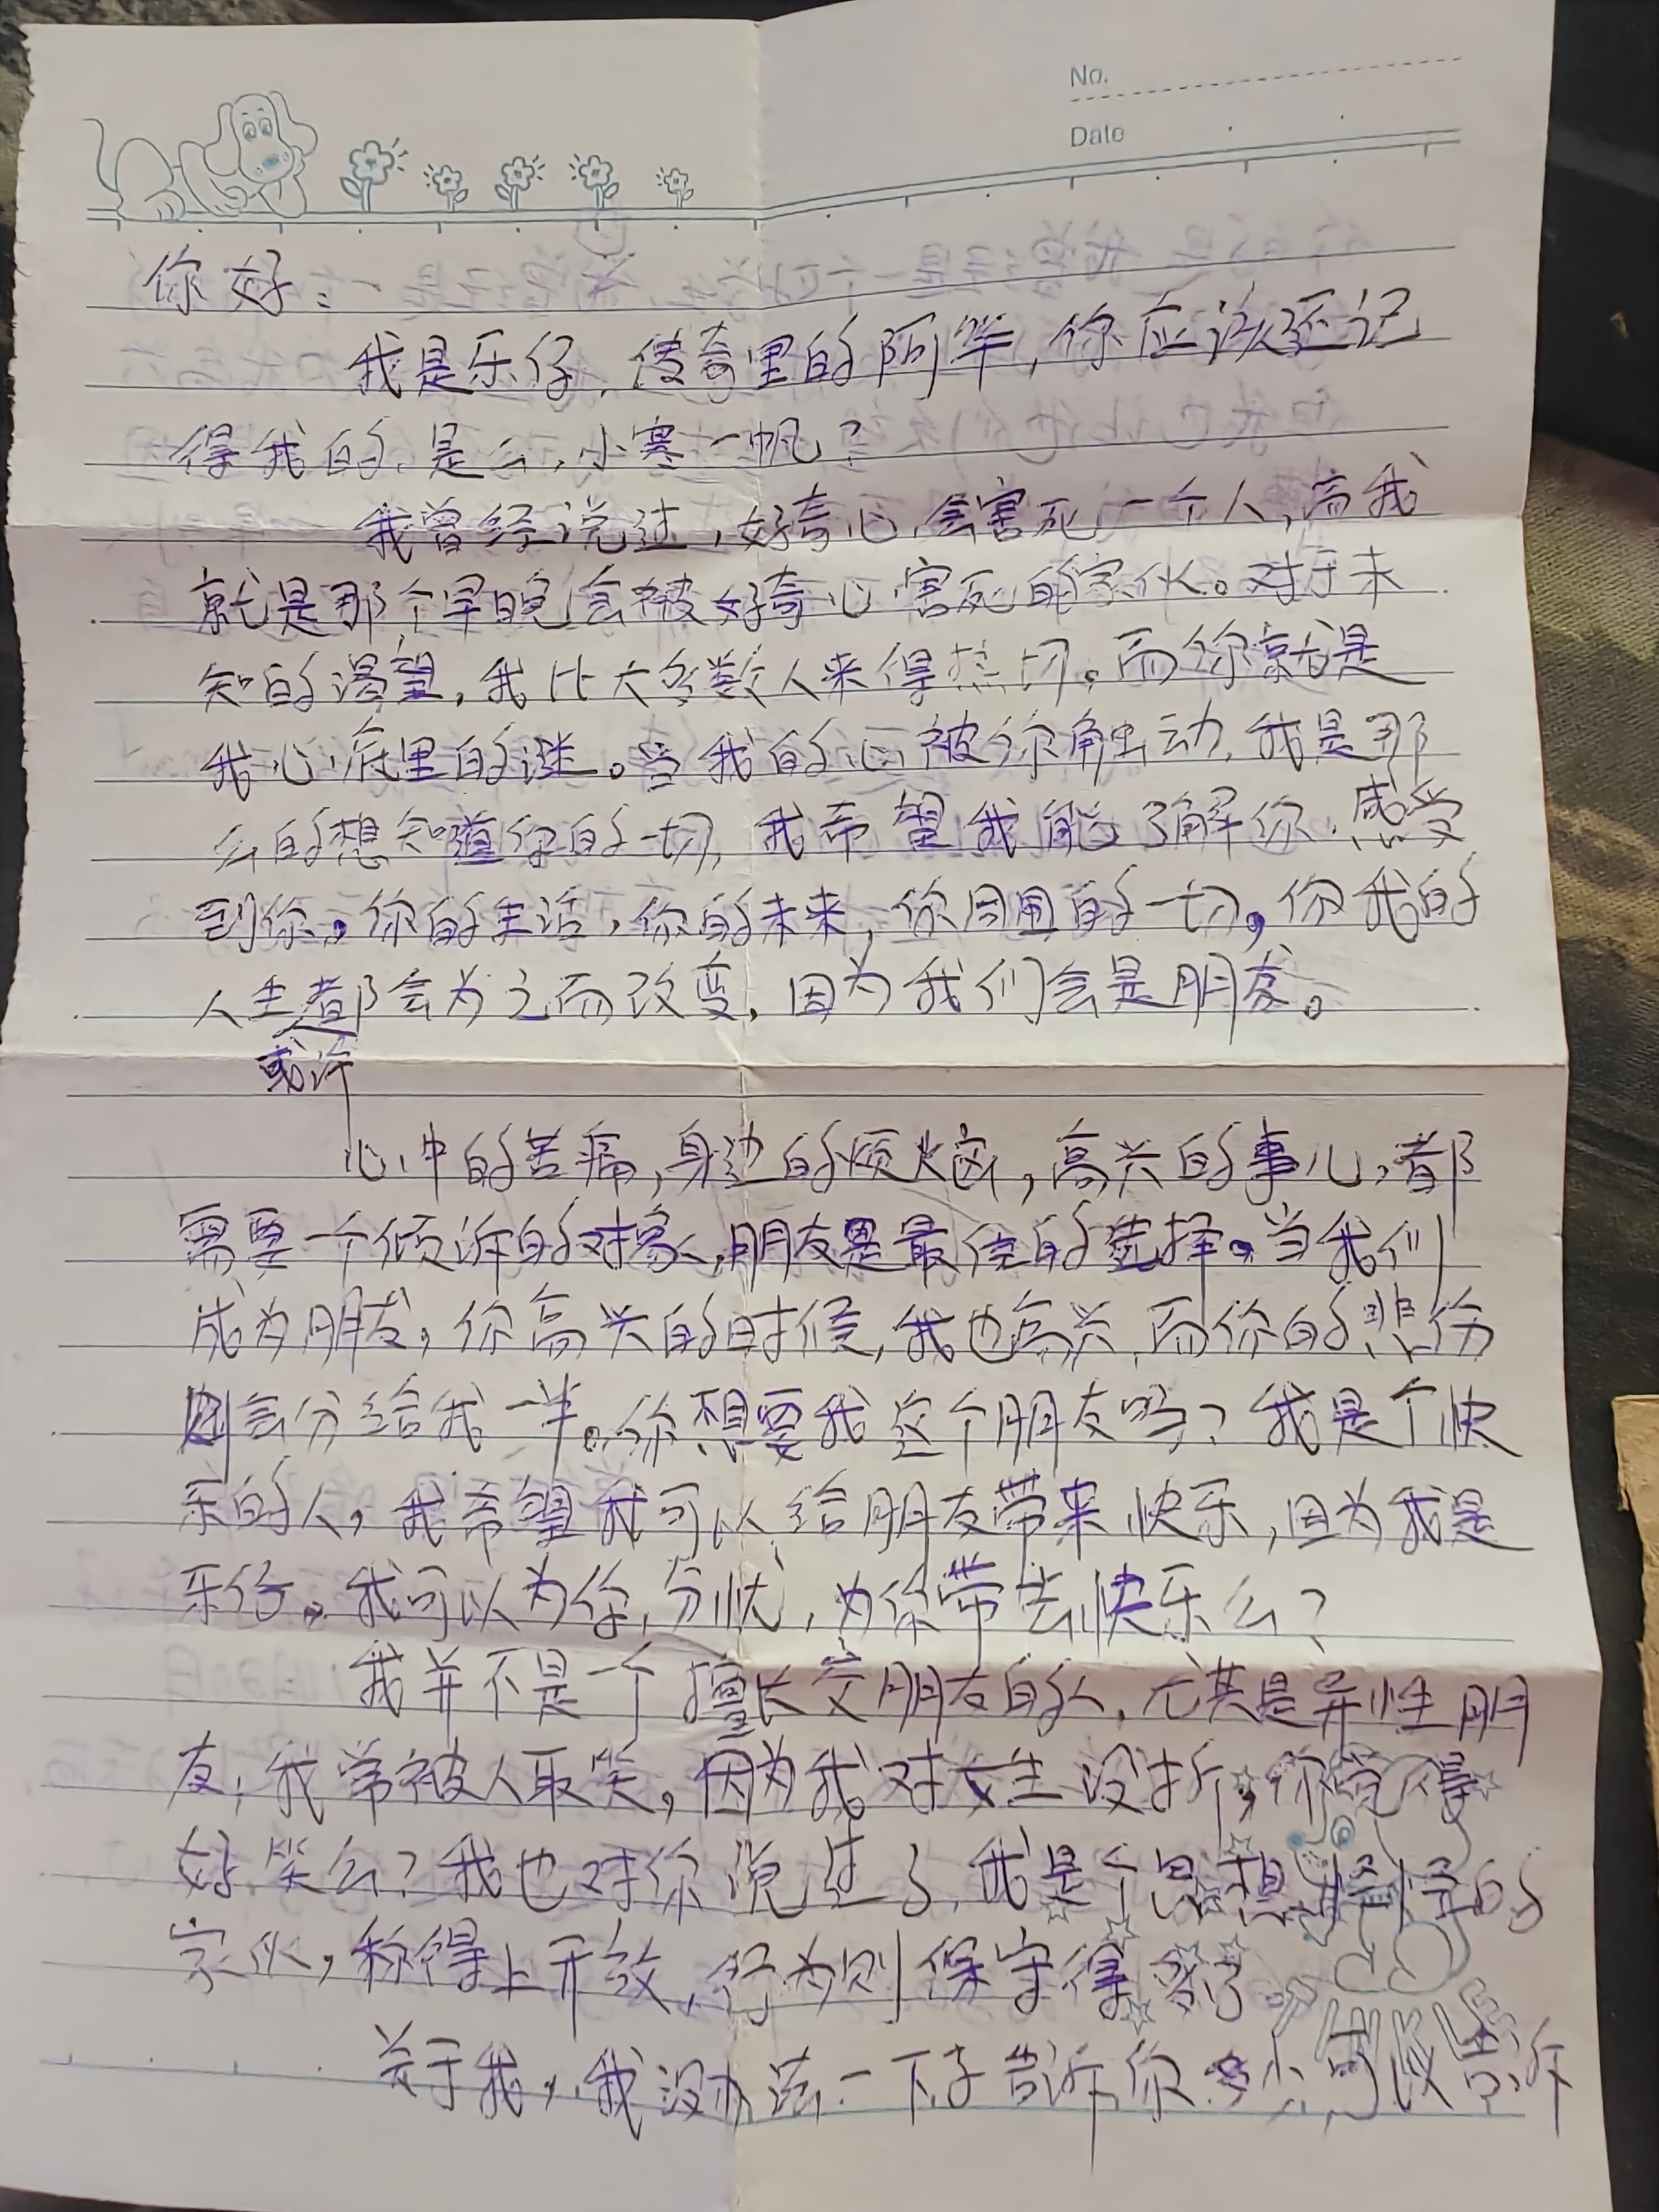 No.
Date
你好:
我是乐仔,传奇里的阿笨,你应该还记
得我的,是么,小寒一帆?
我曾经说过,好奇心会害死一个人,而我
就是那个早晚会被好奇心害死的家伙。对于未
知的渴望,我比大多数人来得热切。而你就是
我心底里的谜。当我的心被你触动,我是那
么的想知道你的一切,我希望我能了解你,感受
到你。你的生活,你的未来,你周围的一切。你我的
人生都会为之而改变,因为我们会是朋友。
或许
心中的苦痛,身边的烦恼,高兴的事儿,都
需要一个倾诉的对象,朋友是最佳的选择。当我们
成为朋友,你高兴的时候,我也高兴,而你的悲伤
则会分给我一半。你想要我这个朋友吗?我是个快
乐的人,我希望我可以给朋友带来快乐,因为我是
乐仔。我可以为你分忧,为你带去快乐么?
我并不是一个擅长交朋友的人,尤其是异性朋
友,我常被人取笑,因为我对女生没折,你觉得
好笑么?我也对你说过了,我是个思想怪怪的
家伙,称得上开放,行为则保守得多了。
关于我,我没办法一下子告诉你多少,可以告诉